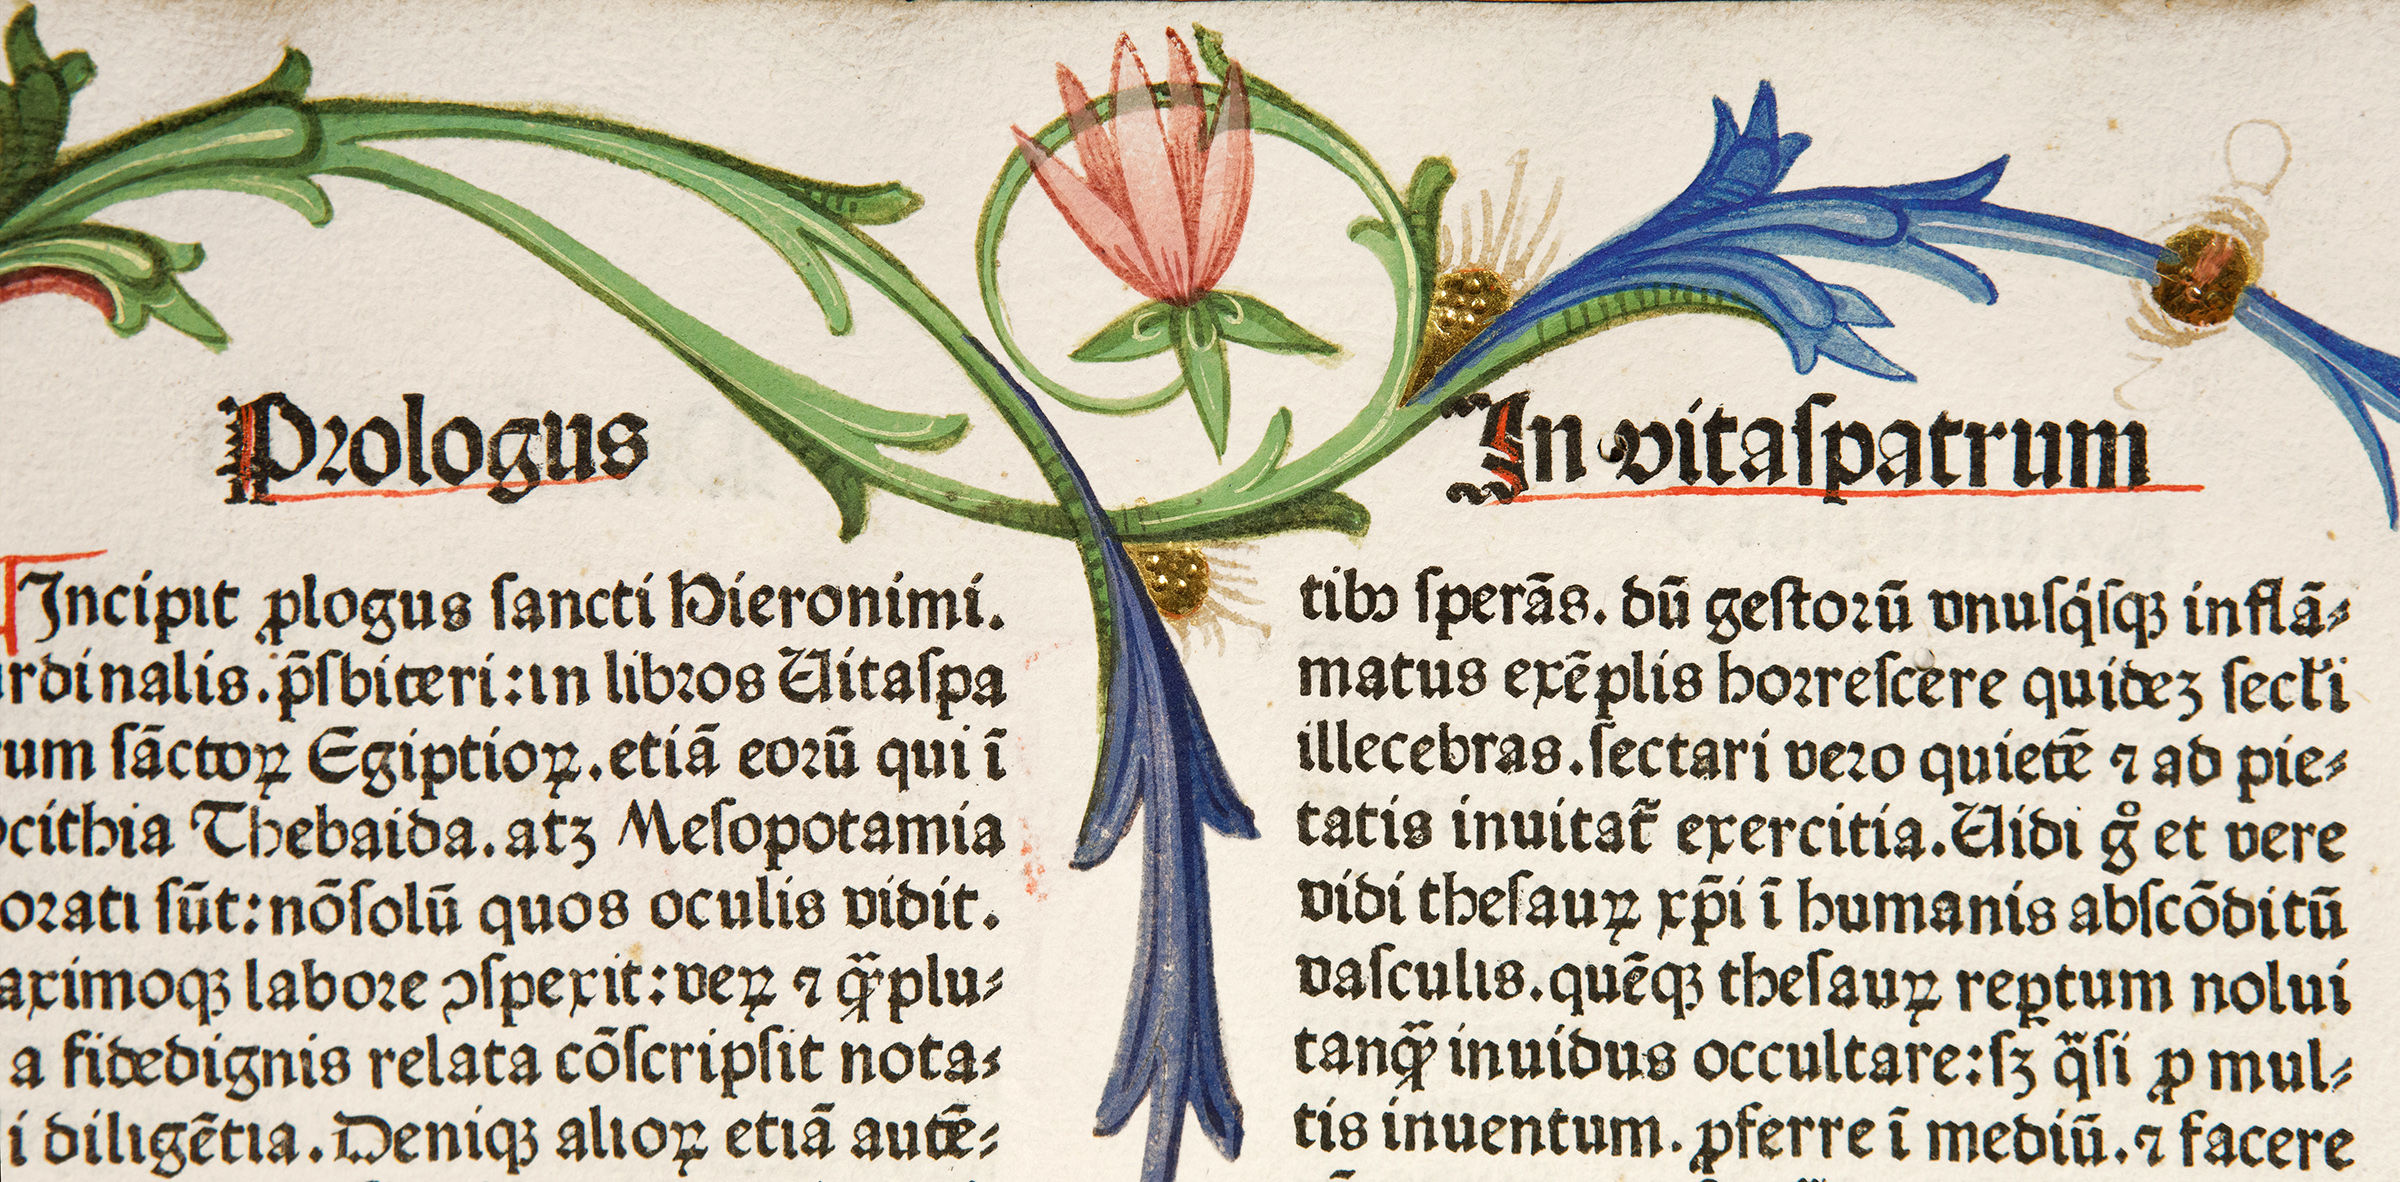 Prologus
In vitaſpatrum
Incipit ꝓlogus ſancti Hieronimi.
rdinalis.p̄ſbiteri:in libros Uitaſpa
um ſāctoꝝ Egiptioꝝ.etiā eoꝛū qui ī
cithia Thebaida.atꝫ Meſopotamia
oꝛati ſūt:nōſolū quos oculis vidit.
aximoqꝫ laboꝛe ↄſpexit:veꝝ ⁊ qᷓꝫplu⸗
a fidedignis relata cōſcripſit nota⸗
i diligētia.Deniqꝫ alioꝝ etiā autē⸗
tibꝰ ſperās. dū geſtoꝛū vnuſq̇ſqꝫ inflā⸗
matus exēplis hoꝛreſcere quidez ſecl̓i
illecebras.ſectari veꝛo quietē ⁊ ad pie⸗
tatis inuitat̃ exercitia.Uidi gͦ et vere
vidi theſauꝝ xp̄i ī humanis abſcōditū
vaſculis.quēqꝫ theſauꝝ reꝑtum nolui
tanqᷓꝫ inuidus occultare:ſꝫ qᷓſi ꝓ mul⸗
tis inuentum. ꝓferre ī mediū.⁊ facere